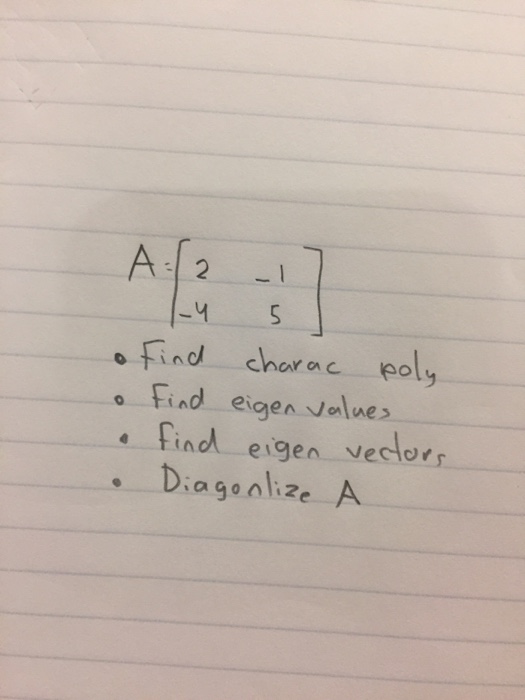 A=[2 -1
-4 5]
• Find charac poly
• Find eigen values
• Find eigen vectors
• Diagonlize A